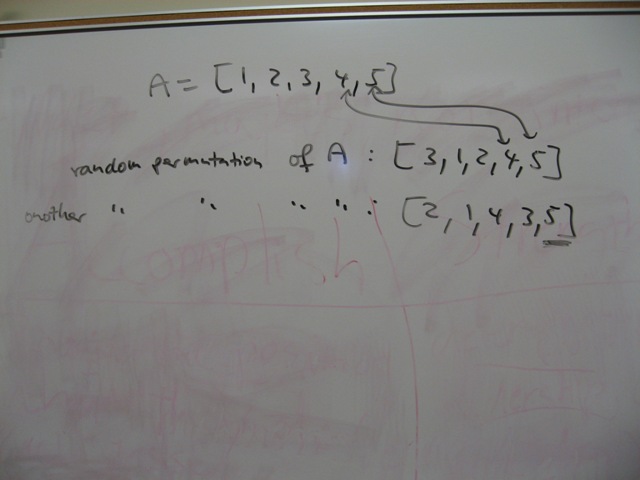 A = [1, 2, 3, 4, 5]
random permutation of A : [3, 1, 2, 4, 5]
another " " " " : [2, 1, 4, 3, 5]
Accomplish